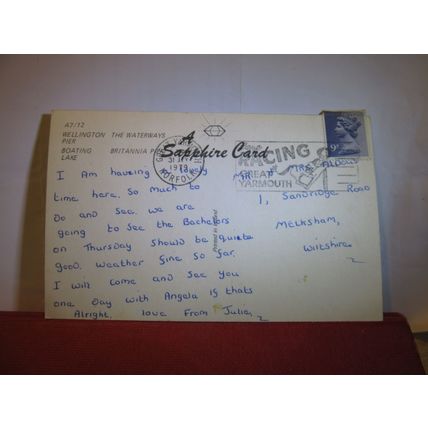 A7/12
WELLINGTON THE WATERWAYS
PIER
BOATING BRITANNIA PIER
LAKE
A
Sapphire Card
GREAT YARMOUTH
1979
NORFOLK
RACING
GREAT
YARMOUTH
9P
Printed in Ireland
I Am having a
time here. So much to
Do and see. we are
going to See the Bachelors
on Thursday should be quite
good. Weather fine so far.
I will come and see you
one Day with Angela is thats
Alright. love From Julie,
MR + MRS
1, Sandridge Road
Melksham,
Wiltshire